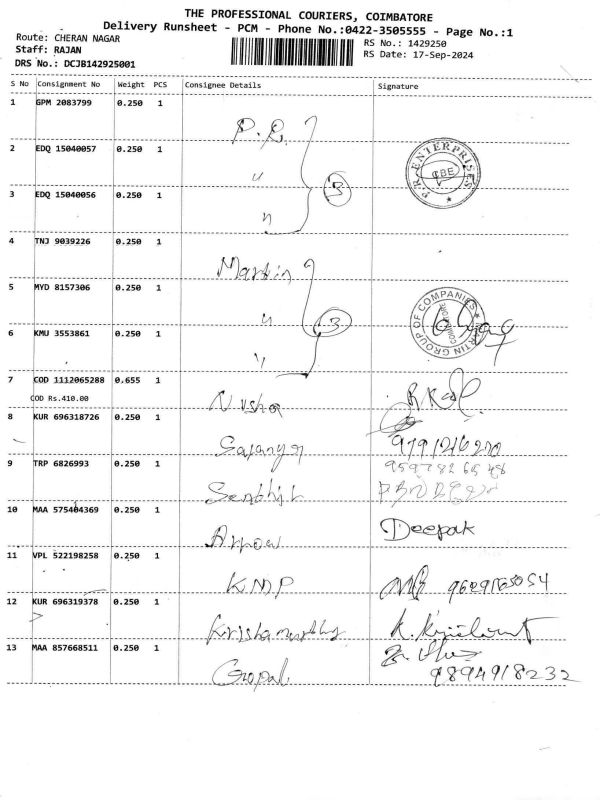 THE PROFESSIONAL COURIERS, COIMBATORE
Delivery Runsheet - PCM - Phone No.:0422-3505555 - Page No.:1
Route: CHERAN NAGAR
RS No.: 1429250
Staff: RAJAN
RS Date: 17-Sep-2024
DRS No.: DCJB142925001
S No Consignment No Weight PCS Consignee Details Signature
1 GPM 2083799 0.250 1 P.R.
2 EDQ 15040057 0.250 1 " P.R ENTERPRISES CBE
3 EDQ 15040056 0.250 1 " 3
4 TNJ 9039226 0.250 1 Martin
5 MYD 8157306 0.250 1 " 3 MARTIN GROUP OF COMPANIES COIMBATORE
6 KMU 3553861 0.250 1 "
7 COD 1112065288 0.655 1 Nisha
COD Rs.410.00
8 KUR 696318726 0.250 1 Saranya
9 TRP 6826993 0.250 1 9597826548
10 MAA 575404369 0.250 1 Arrow Deepak
11 VPL 522198258 0.250 1 KMP
12 KUR 696319378 0.250 1 Krishamurthy
13 MAA 857668511 0.250 1 Gopal 9894918232